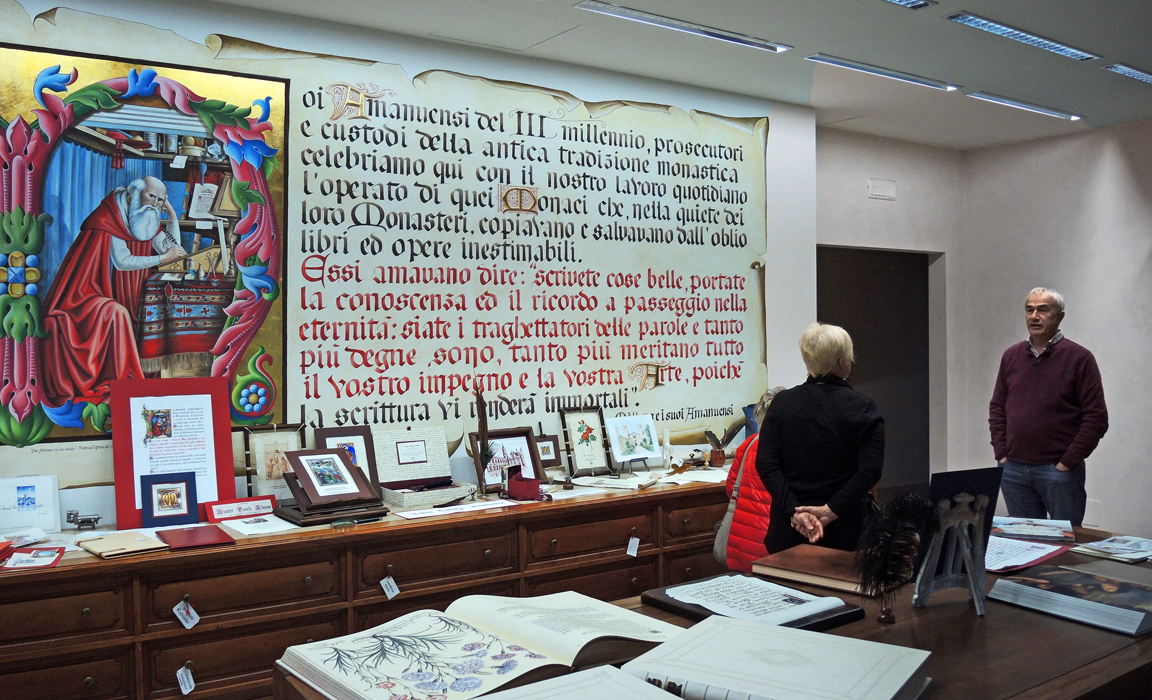 oi Amanuensi del III millennio, prosecutori
e custodi della antica tradizione monastica
celebriamo qui con il nostro lavoro quotidiano
l'operato di quei Monaci che, nella quiete dei
loro Monasteri, copiavano e salvavano dall'oblio
libri ed opere inestimabili.
Essi amavano dire: "scrivete cose belle, portate
la conoscenza ed il ricordo a passeggio nella
eternità: siate i traghettatori delle parole e tanto
più degne sono, tanto più meritano tutto
il vostro impegno e la vostra Arte, poichè
la scrittura vi renderà immortali".
e i suoi Amanuensi